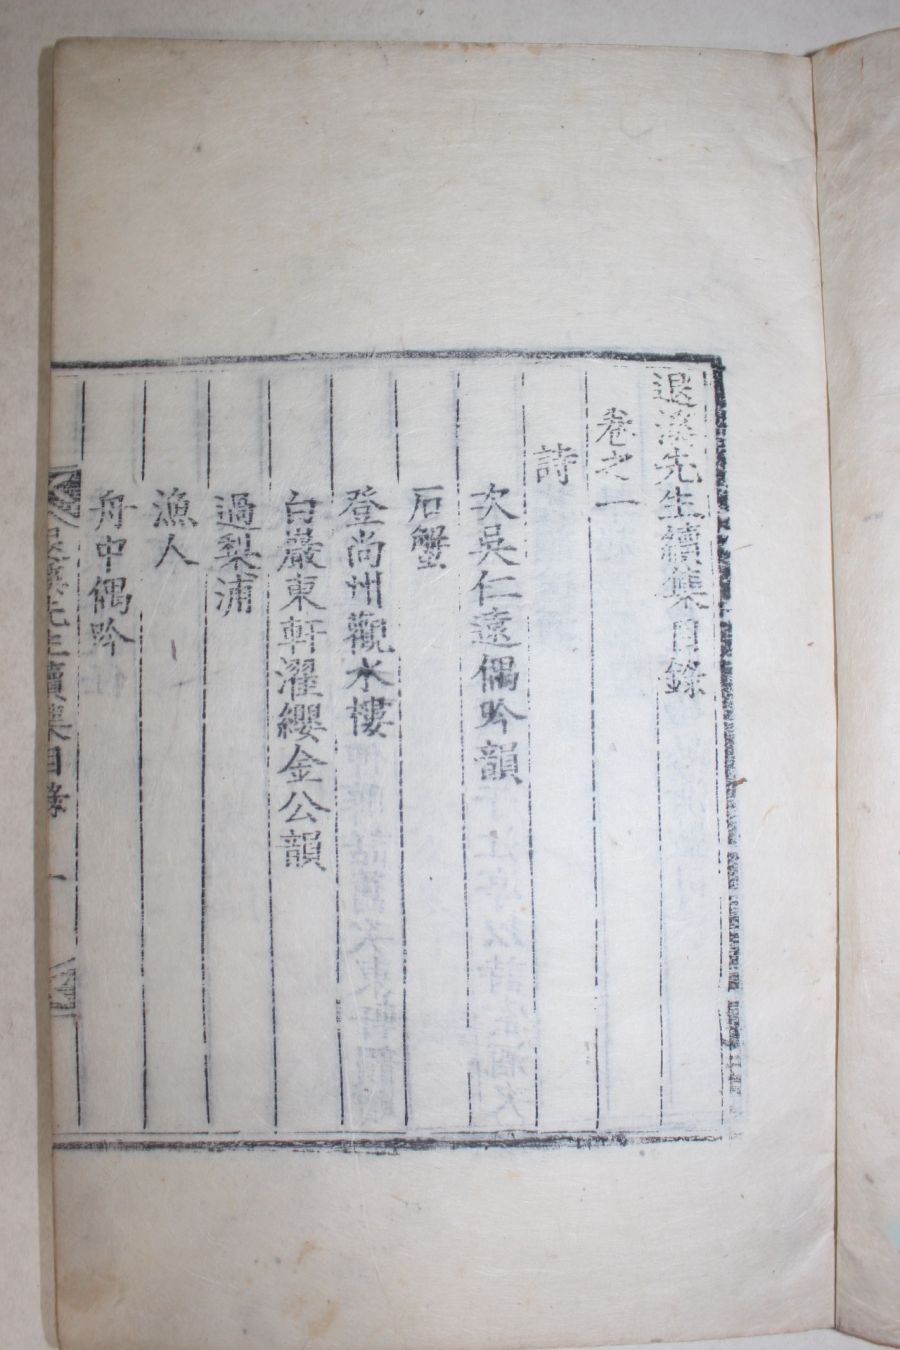 退溪先生續集目錄
卷之一
詩
次吳仁遠偶吟韻
石蟹
登尚州觀水樓
白巖東軒濯纓金公韻
過梨浦
漁人
舟中偶吟
退溪先生續集目錄 一